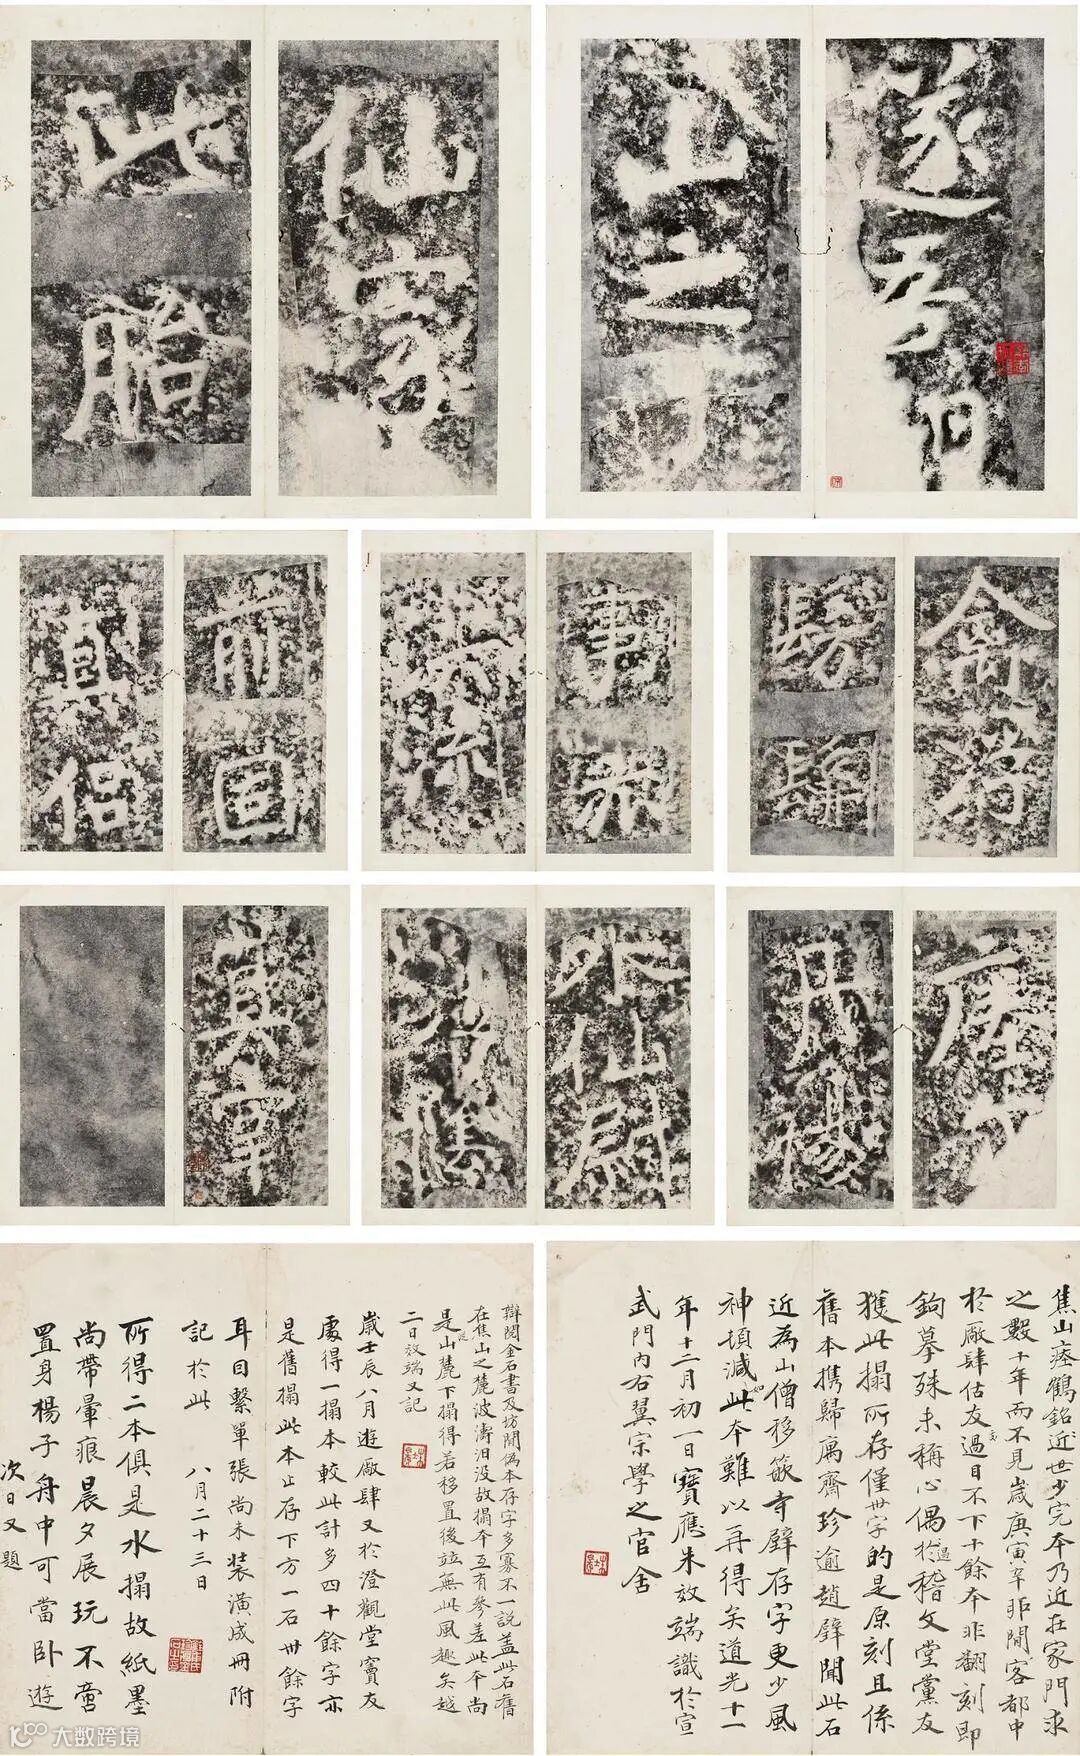 遂吾
山之下
仙家
此胎
禽浮
事篆
前固
真侶
丹楊
外仙尉
江陰
真宰
焦山瘞鶴銘近世少完本乃近在家門求
之數十年而不見歲庚寅辛卯閒客都中
於廠肆估友處過目不下十餘本非翻刻即
鉤摹殊未稱心偶過於稽文堂黨友
獲此搨所存僅卅字的是原刻且係
舊本攜歸寓齋珍逾趙璧聞此石
近為山僧移嵌寺壁存字更少風
神頓減如此本難以再得矣道光十一
年十二月初一日寶應朱效端識於宣
武門內右翼宗學之官舍
辯閱金石書及坊閒偽本存字多寡不一說蓋此石舊
在焦山之麓波濤汨沒故搨本互有參差此本尚
是從山麓下搨得若移置後竝無此風趣矣越
二日效端又記
歲壬辰八月遊廠肆又於澄觀堂竇友
處得一搨本較此計多四十餘字亦
是舊搨此本止存下方一石卅餘字
耳目繫單張尚未裝潢成冊附
記於此 八月二十三日
所得二本俱是水搨故紙墨
尚帶暈痕晨夕展玩不啻
置身楊子舟中可當臥遊
次日又題
大数跨境